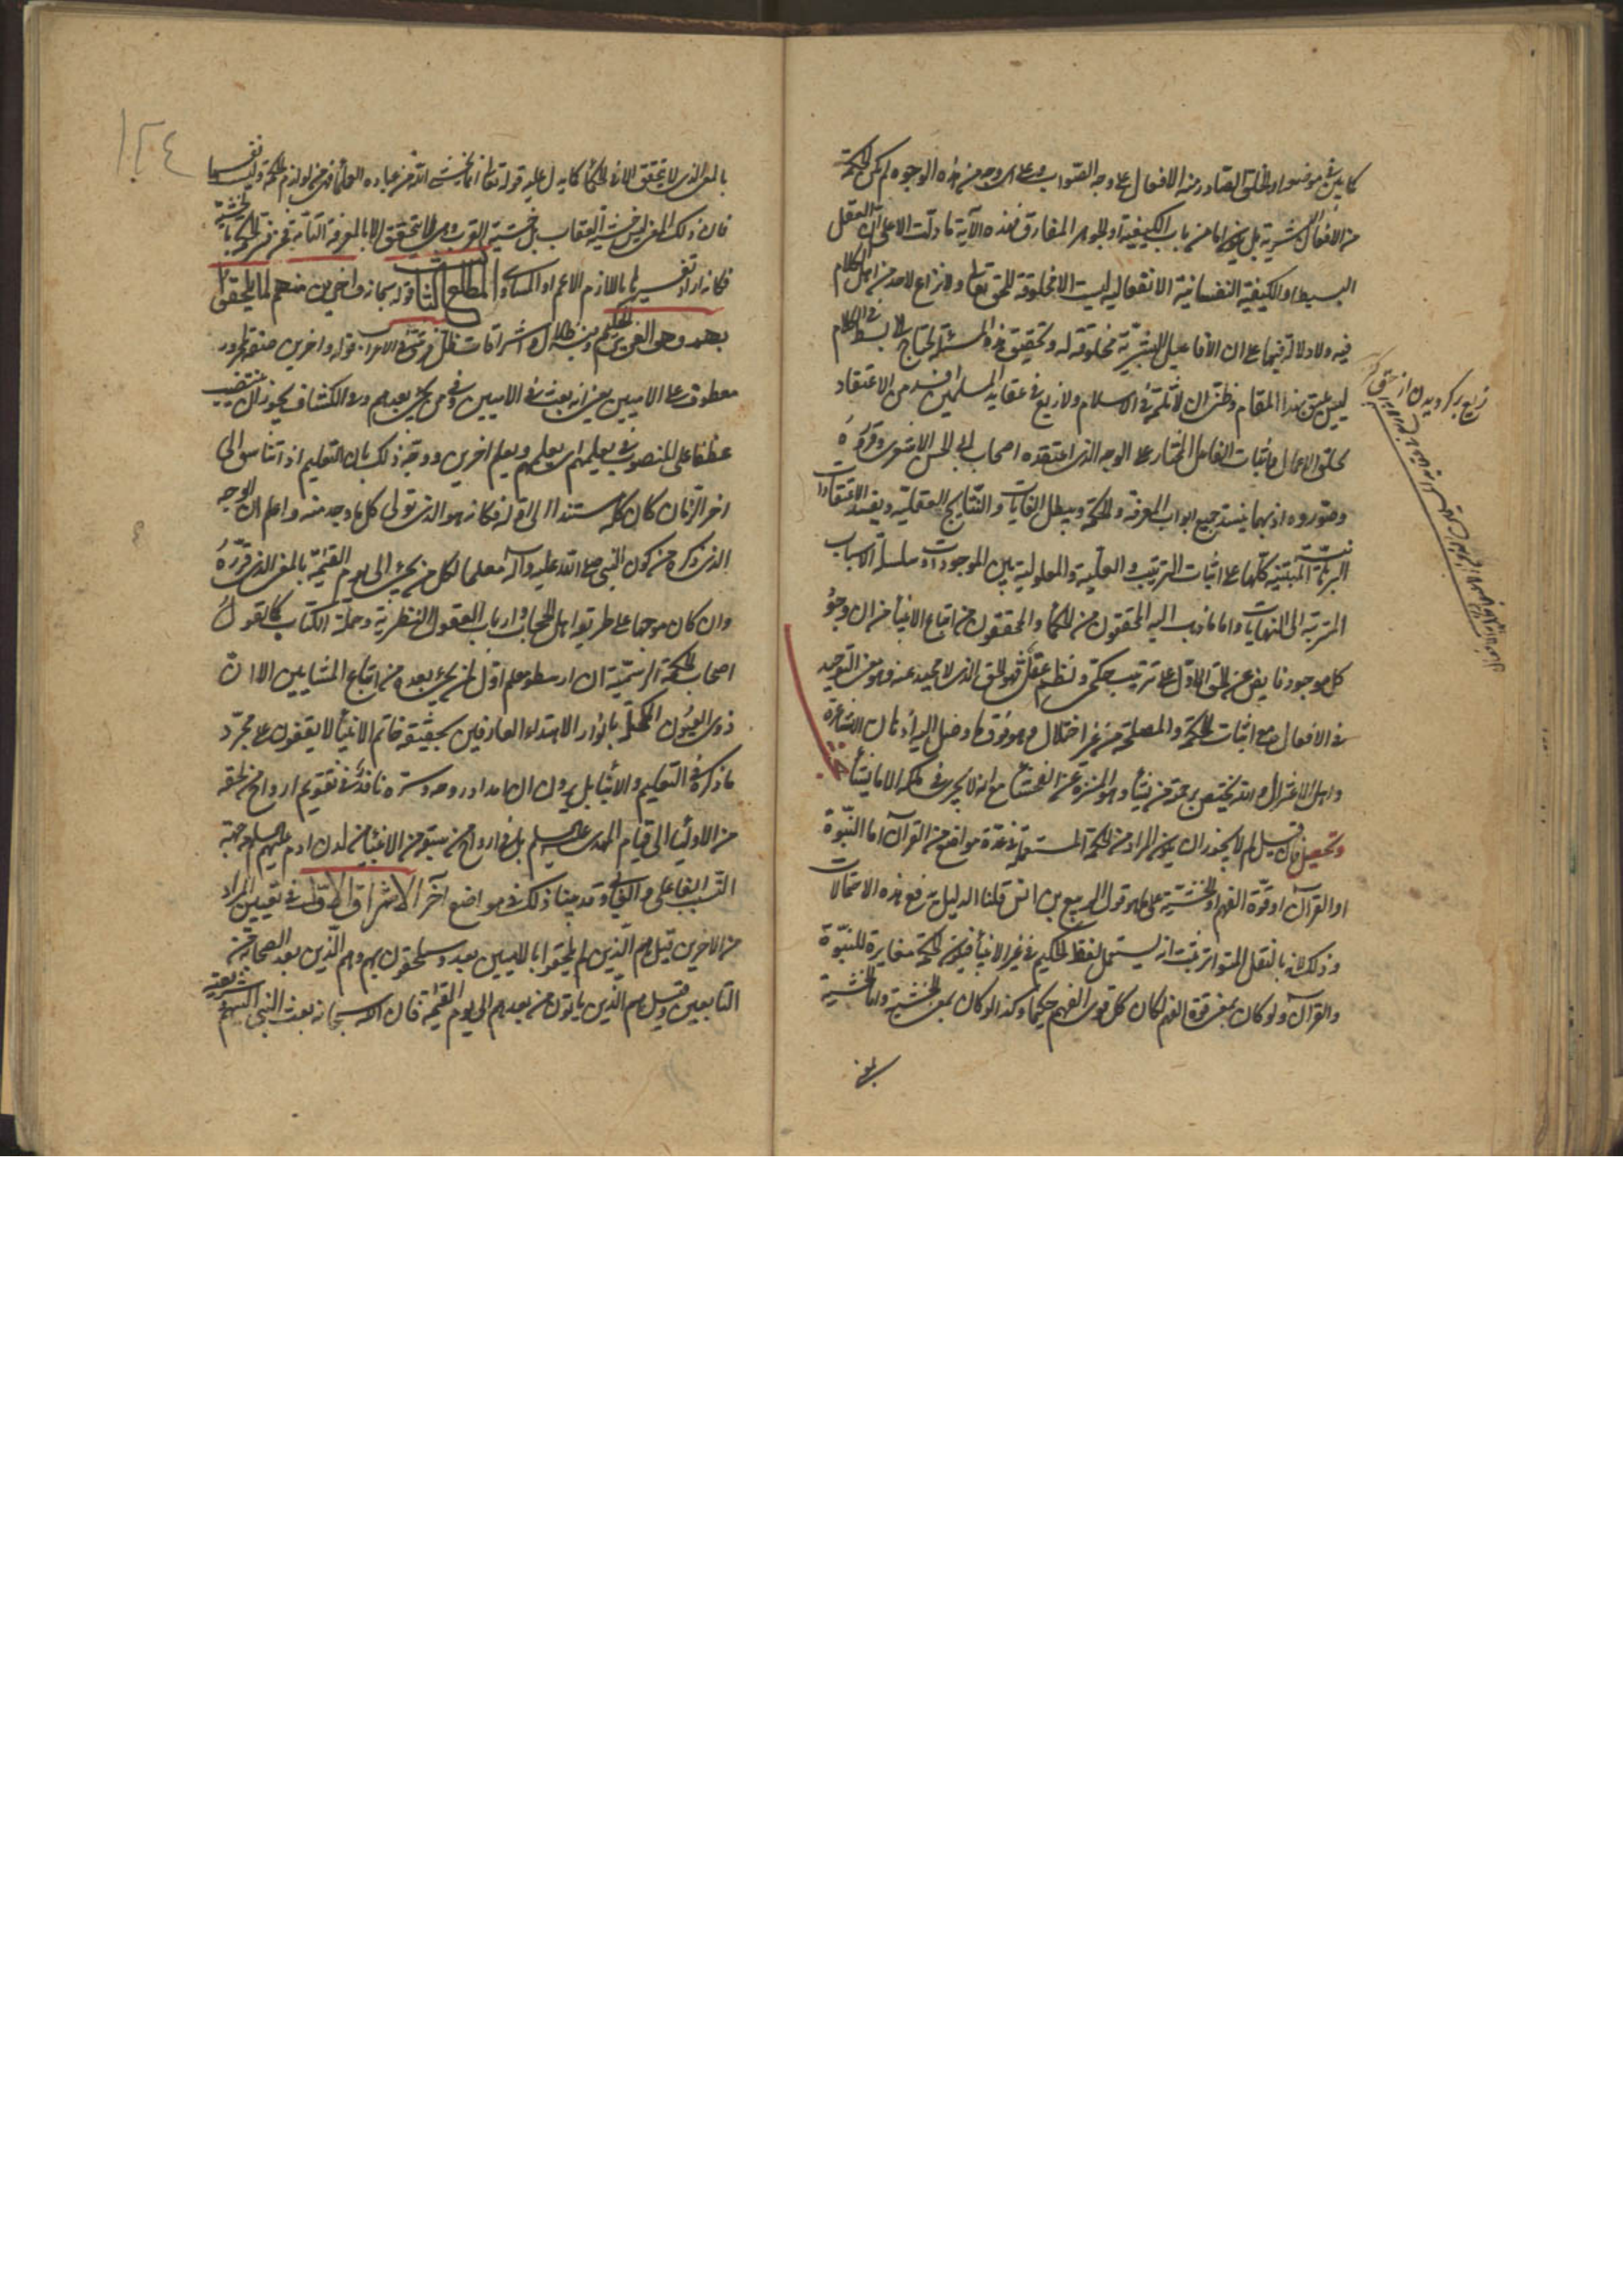 كما بين في موضعه او الخلق الصادر منه الافعال على وجه الصواب وعلى اي وجه من هذه الوجوه لم يكن الحكمة
من الافعال البشرية بل يكون اما من باب الكيفية او الجوهر المفارق فهذه الآية ما دلت الا على ان العقل
البسيط او الكيفية النفسانية الانفعالية ليست الا مخلوقة للحق تعالى ولا نزاع لاحد من اهل الكلام
فيه ولا دلالة فيها على ان الافاعيل البشرية مخلوقة له وتحقيق هذه المسئلة يحتاج الى بسط في الكلام
ليس يليق بهذا المقام وظني ان لا ثلمة في الاسلام ولا زيغ في عقايد المسلمين افسد من الاعتقاد
بخلق الاعمال واثبات الفاعل المختار على الوجه الذي اعتقده اصحاب ابي الحسن الاشعري وقرروه
وصوروه اذ بهما ينسد جميع ابواب المعرفة والحكمة ويبطل الغايات والنتايج العقلية ويفسد الاعتقادات
المبتنية كلها على اثبات الترتيب والعلية والمعلولية بين الموجودات وسلسلة الاسباب
المترتبة الى النهايات واما ما ذهب اليه المحققون من الحكماء والمحققون من اتباع الانبياء من ان وجود
كل موجود فايض عن الحق الاول على ترتيب حكمي ونظم عقلي فهو الحق الذي لا محيد عنه وهو معنى التوحيد
في الافعال مع اثبات الحكمة والمصلحة من غير اختلال وهو فوق ما وصل اليه آراء الاشاعرة
واهل الاعتزال والله يختص برحمته من يشاء وهو المنزه عن الفحشاء مع انه لا يجري في ملكه الا ما يشاء
وتحصيل فان قيل لم لا يجوز ان يكون المراد من الحكمة المستعملة في عدة مواضع من القرآن اما النبوة
او القرآن او قوة الفهم او الخشية على ما هو قول الربيع بن انس قلنا الدليل يرفع هذه الاحتمالات
وذلك لانه بالنقل المتواتر ثبت انه يستعمل لفظ الحكيم في غير الانبياء فيكون الحكمة مغايرة للنبوة
والقرآن ولو كان بمعنى قوة الفهم لكان كل قوي الفهم حكيما وكذا لو كان بمعنى الخشية واما الخشية
بالمعنى الذي لا يتحقق الا في الحكماء كما يدل عليه قوله تعالى انما يخشى الله من عباده العلماء فهي من لوازم الحكمة وليست نفسها
فان ذلك المعنى ليس خشية العقاب بل خشية القرب وهي لا يتحقق الا بالمعرفة التامة فمن فسر الحكمة بالخشية
فكانه اراد تفسيرها باللازم الاعم او المساوي المطلع الثامن قوله سبحانه واخرين منهم لما يلحقوا
بهم وهو العزيز الحكيم وفيه اشراقات الاول قوله واخرين صفة مجرور
معطوف على الاميين يعني انه بعث في الاميين وفي من يجيء بعدهم وفي الكشاف يجوز ان ينتصب
عطفا على المنصوب في يعلمهم اي يعلمهم ويعلم اخرين ووجه ذلك بان التعليم اذا تناسق الى
اخر الزمان كان كله مستندا الى اوله فكانه هو الذي تولى كل ما وجد منه واعلم ان الوجه
الذي ذكره من كون النبي صلى الله عليه وآله معلما لكل من يجيء الى يوم القيمة بالمعنى الذي قرره
وان كان موجها على طريقة اهل الحجاب وارباب العقول النظرية وحملة الكتاب كما يقول
اصحاب الحكمة الرسمية ان ارسطو معلم اول لمن يجيء بعده من اتباع المشايين الا ان
ذوي العيون المكحلة بانوار الاهتداء والعارفين بحقيقة خاتم الانبياء لا يقفون على مجرد
ما ذكره في التعليم والانباء بل يرون ان امداد روحه وسره نافذة في تقويم ارواح من لحقه
من الاولياء الى قيام المهدي عليه السلم بل في ارواح من سبقه من الانبياء من لدن ادم عليهم السلم من جهة
السبب الفاعلي والغائي وقد بينا ذلك في مواضع آخر الاشراق الاول في تعيين المراد
من الاخرين قيل هم الذين لم يلحقوا بالاميين بعد وسيلحقون بهم وهم الذين بعد الصحابة من
التابعين وقيل هم الذين ياتون من بعدهم الى يوم القيمة فان الله سبحانه بعث النبي اليهم وشريعته